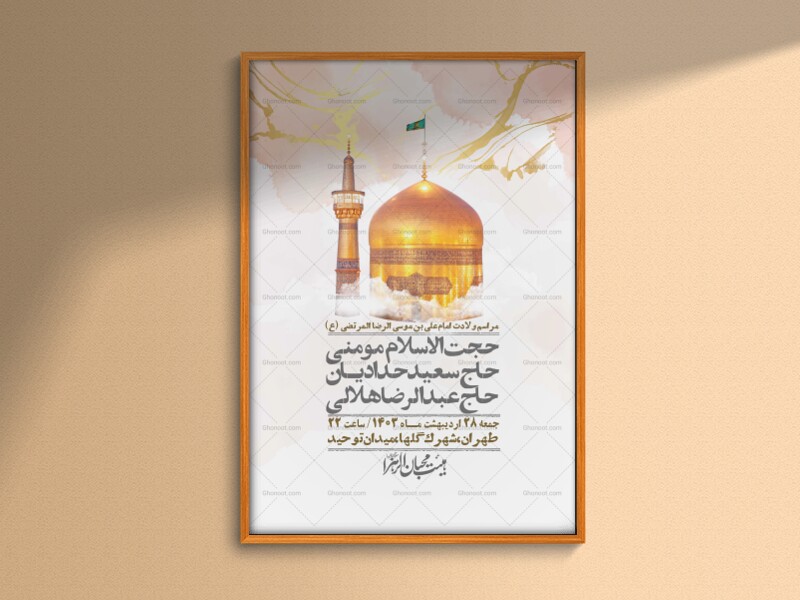 مراسم ولادت امام علی بن موسی الرضا المرتضی (ع)
حجت الاسلام مومنی
حاج سعید حدادیان
حاج عبدالرضا هلالی
جمعه ۲۸ اردیبهشت ماه ۱۴۰۳ / ساعت ۲۲
طهران، شهرک گلها، میدان توحید
هیئت محبان الزهرا
Ghonoot.com